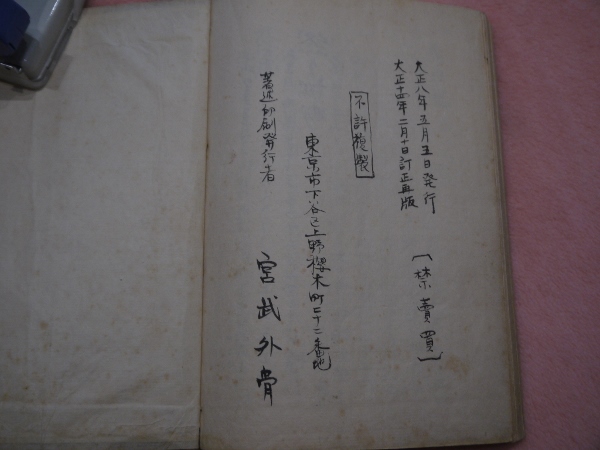 大正八年五月五日発行
大正十四年二月十日訂正再版
[禁賣買]
不許複製
東京市下谷区上野櫻木町二十二番地
著述印刷発行者
宮武外骨